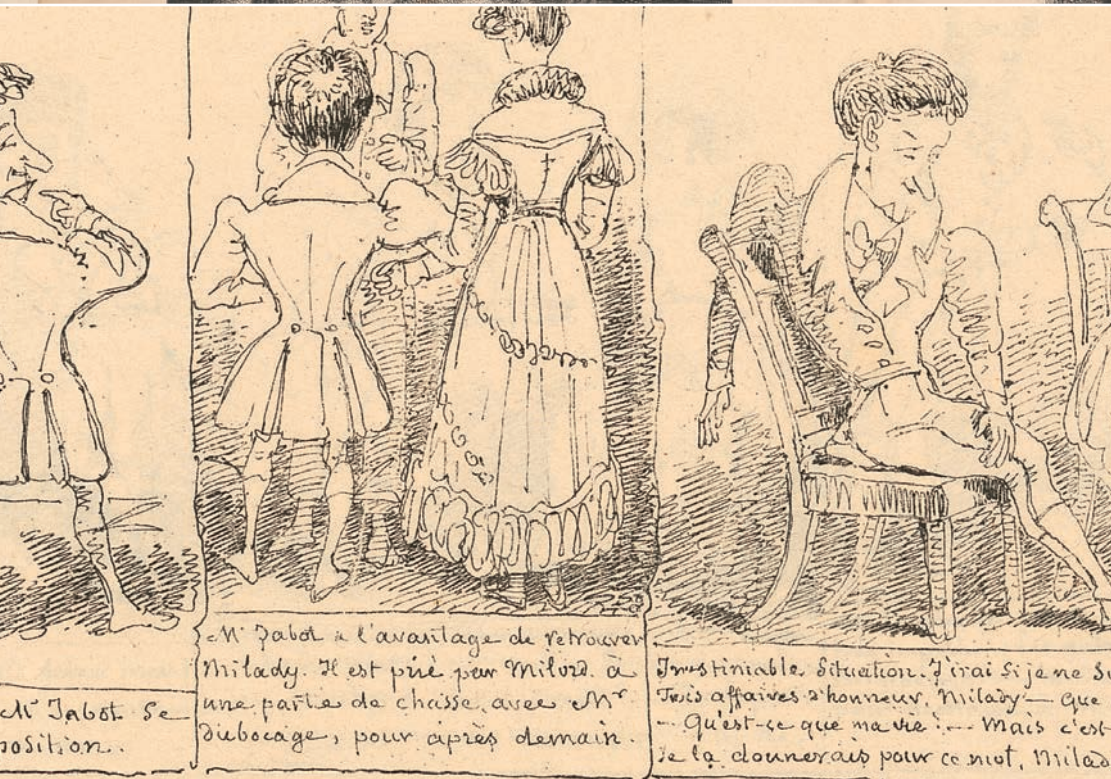 Mr Jabot se
position.
Mr Jabot a l'avantage de retrouver
Milady. Il est prié par Milord à
une partie de chasse, avec Mr
dubocage, pour après demain.
Inestimable Situation. J'irai si je ne
Trois affaires d'honneur, Milady — que
— Qu'est-ce que ma vie! — Mais c'est
Je la donnerais pour ce mot, Milad